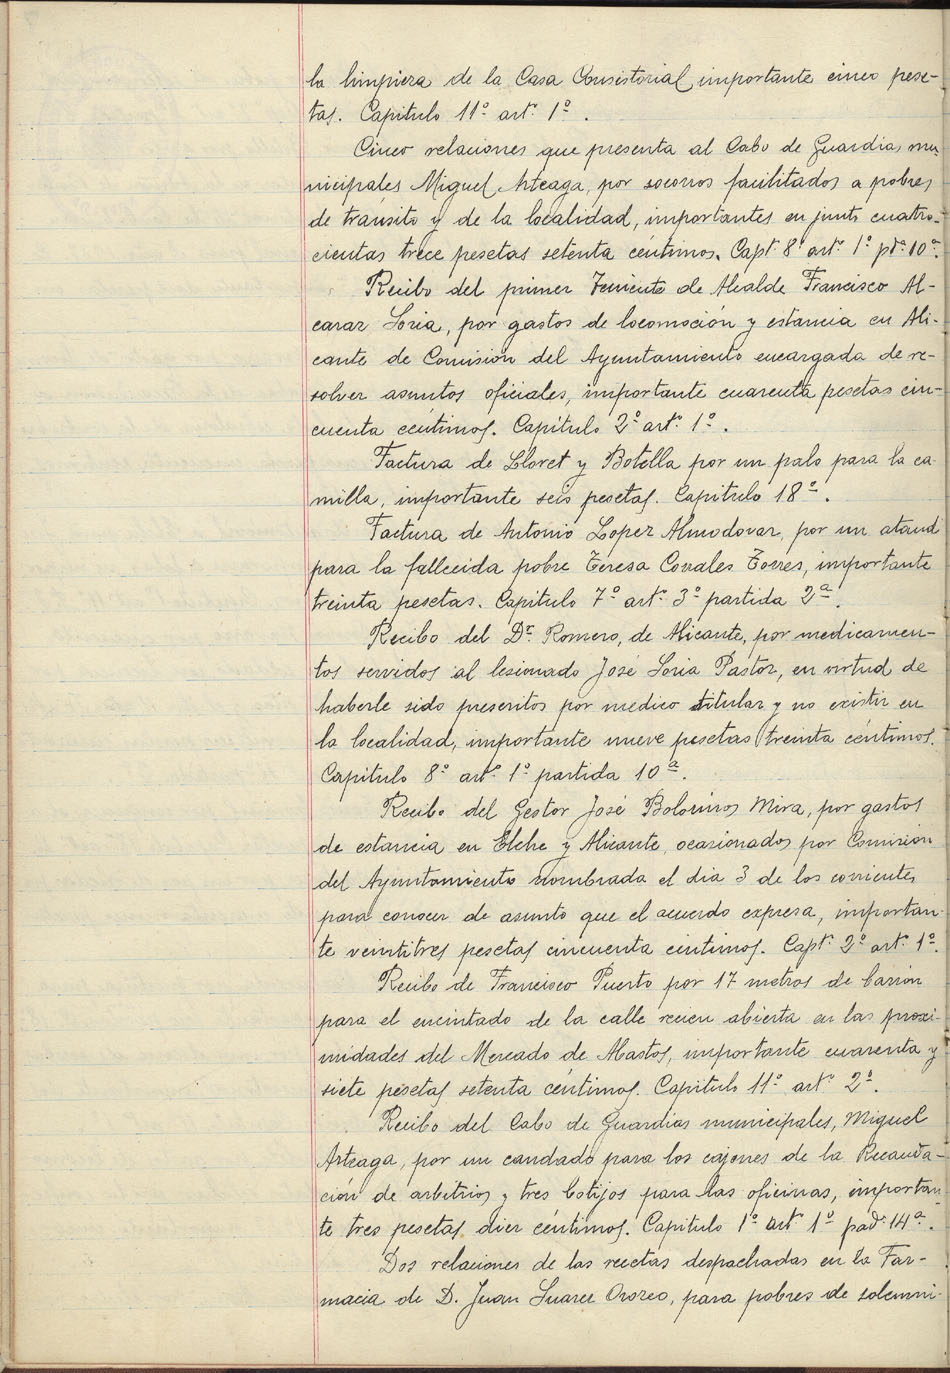 la limpieza de la Casa Consistorial importante cinco pese-
tas. Capitulo 11º artº 1º.
Cinco relaciones que presenta al Cabo de Guardias mu-
nicipales Miguel Arteaga, por socorros facilitados a pobres
de tránsito y de la localidad, importantes en junto cuatro-
cientas trece pesetas setenta céntimos. Capt. 8º artº 1º pdª 10ª.
Recibo del primer Teniente de Alcalde Francisco Al-
caraz Soria, por gastos de locomoción y estancia en Ali-
cante de Comisión del Ayuntamiento encargada de re-
solver asuntos oficiales, importante cuarenta pesetas cin-
cuenta céntimos. Capitulo 2º artº 1º.
Factura de Lloret y Botella por un palo para la ca-
milla, importante seis pesetas. Capitulo 18º.
Factura de Antonio Lopez Almodovar, por un ataud
para la fallecida pobre Teresa Corrales Torres, importante
treinta pesetas. Capitulo 7º artº 3º partida 2ª.
Recibo del Dr. Romero, de Alicante, por medicamen-
tos servidos al lesionado José Soria Pastor, en virtud de
haberle sido prescritos por medico titular y no existir en
la localidad, importante nueve pesetas treinta céntimos.
Capitulo 8º artº 1º partida 10ª.
Recibo del Gestor José Bolorinos Mira, por gastos
de estancia en Elche y Alicante, ocasionados por Comisión
del Ayuntamiento nombrada el dia 3 de los corrientes
para conocer de asunto que el acuerdo expresa, importan-
te veintitres pesetas cincuenta centimos. Capt. 2º artº 1º.
Recibo de Francisco Puerto por 17 metros de
para el encintado de la calle recien abierta en las proxi-
midades del Mercado de Abastos, importante cuarenta y
siete pesetas setenta céntimos. Capitulo 11º artº 2º.
Recibo del Cabo de Guardias municipales, Miguel
Arteaga, por un candado para los cajones de la Recauda-
ción de arbitrios y tres botijos para las oficinas, importan-
te tres pesetas diez céntimos. Capitulo 1º artº 1º padª 14ª.
Dos relaciones de las recetas despachadas en la Far-
macia de D. Juan Suarez Orozco, para pobres de solemni-